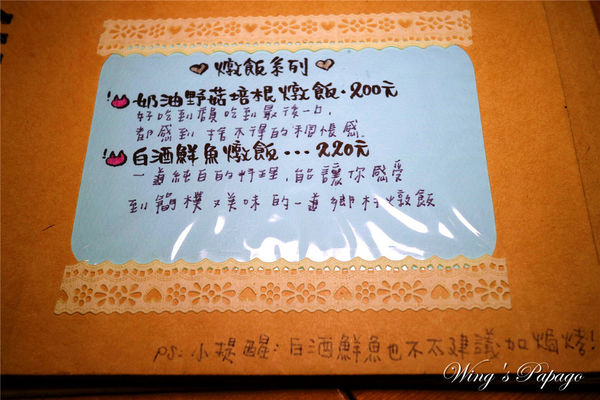 燉飯系列
奶油野菇培根燉飯・200元
好吃到願吃到最後一口,
都感到 捨不得的稠悵感.
白酒鮮魚燉飯...220元
一道純白的料理,能讓你感受
到簡樸又美味的一道鄉村燉飯
PS:小提醒:白酒鮮魚也不太建議加焗烤!
Wing's Papago